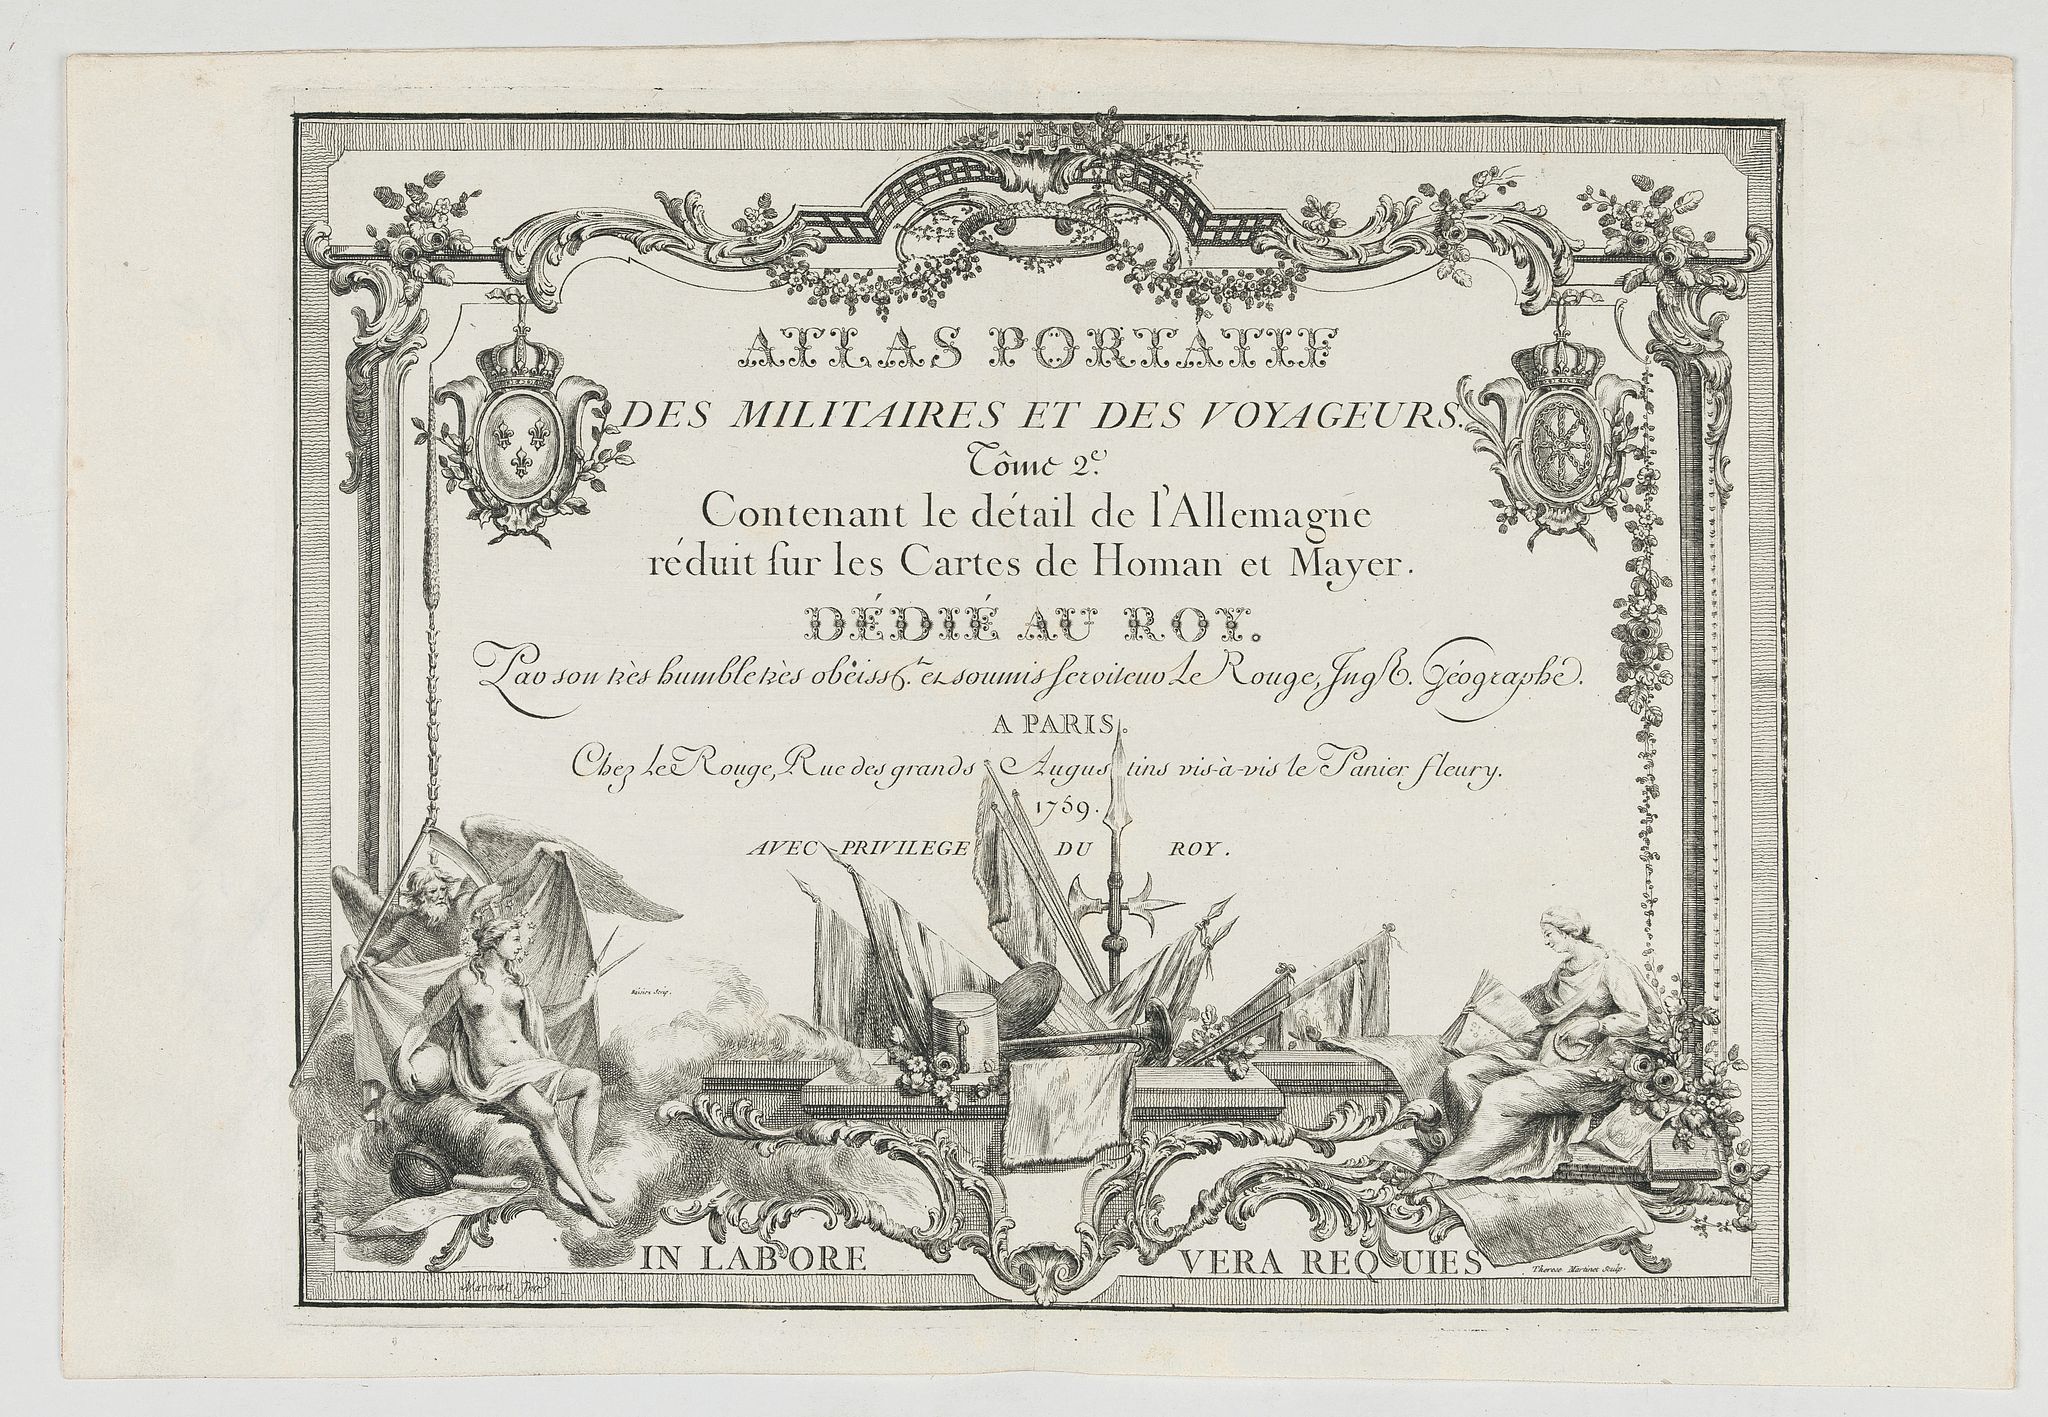 ATLAS PORTATIF
DES MILITAIRES ET DES VOYAGEURS.
Tôme 2.e
Contenant le détail de l'Allemagne
réduit ſur les Cartes de Homan et Mayer.
DÉDIÉ AU ROY.
Par son très humble très obéiss.t et soumis ſerviteur Le Rouge, Géographe.
A PARIS.
Chez le Rouge, Rue des grands Augustins vis-à-vis le Panier fleury.
1759.
AVEC PRIVILEGE DU ROY.
Sculp.
IN LABORE VERA REQUIES
Therese Martinet Sculp.
Martinet